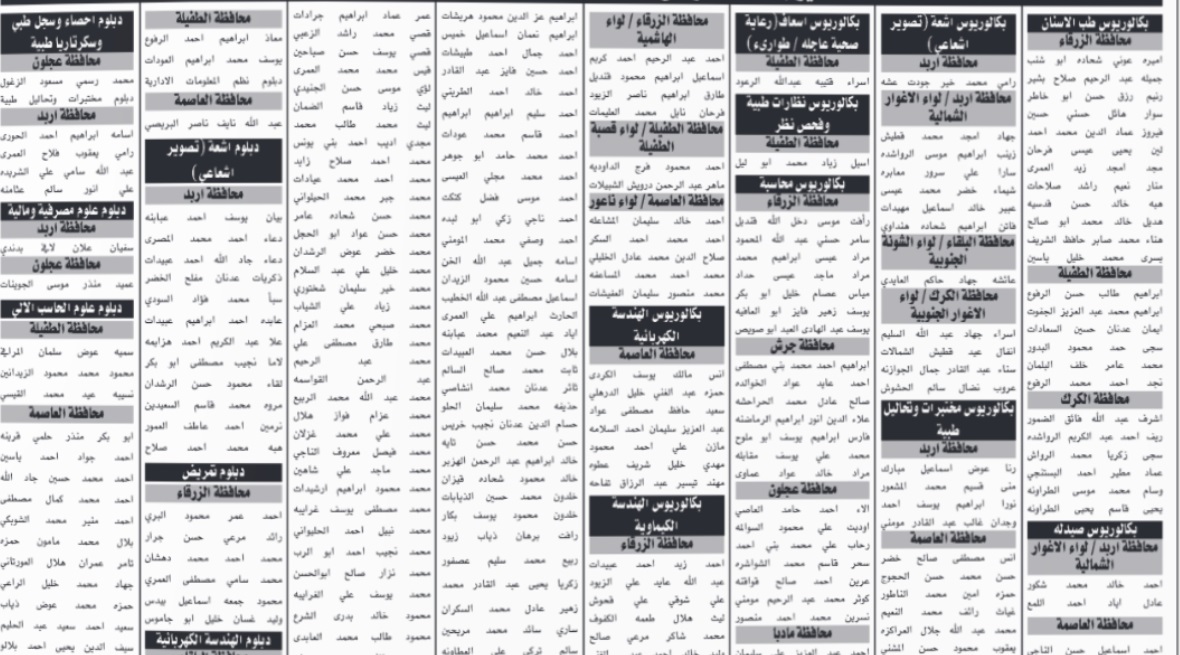 بكالوريوس طب الاسنان
محافظة الزرقاء
اميره عوني شحاده ابو شنب
جميله عبد الرحيم صلاح بشير
رنيم رزق حسن ابو خاطر
سوار هائل حسني حسين
فيروز عماد الدين محمد احمد
لين يحيى عيسى فرحان
مجد امجد زيد العمري
منار نعيم راشد صلاحات
هبه خالد حسن قدسيه
هديل خالد محمد ابو صالح
هناء محمد صابر حافظ الشريف
يسرى محمد خليل ياسين
محافظة الطفيلة
ابراهيم طالب حسن الرفوع
ابراهيم محمد عبد العزيز الجفوت
ايمان عدنان حسين السعادات
سجى حمد محمود البدور
محمد عامر خلف البلمان
نجد احمد محمد الرفوع
محافظة الكرك
اشرف عبد الله فائق الضمور
ريف احمد عبد الكريم الرواشده
سجى زكريا محمد الرواش
عماد مطير احمد البستنجي
وسام محمد موسى الطراونه
يحيى قاسم يحيى الطراونه
بكالوريوس صيدله
محافظة اربد / لواء الاغوار
الشمالية
احمد خالد محمد شكور
عادل اياد احمد اللمع
محافظة العاصمة
احمد اسماعيل حسن التاجي
بكالوريوس اشعة (تصوير
اشعاعي)
محافظة اربد
رامي محمد خير جودت عشه
محافظة اربد / لواء الاغوار
الشمالية
جهاد امجد محمد قطيش
زينب ابراهيم موسى الرواشده
سارا علي سرور معابره
شيماء خضر محمد عيسى
عبير خالد اسماعيل مهيدات
فاتن ابراهيم شحاده هنداوي
محافظة البلقاء / لواء الشونة
الجنوبية
عائشه جهاد حاكم العايدي
محافظة الكرك / لواء
الاغوار الجنوبية
اسراء جهاد عبد الله السليم
انفال عبد قطيش الشمالات
سناء عبد القادر جمال الجوازنه
عروب نضال سالم الحشوش
بكالوريوس مختبرات وتحاليل
طبية
محافظة اربد
رنا عوض اسماعيل مبارك
منى قسيم محمد المشعور
نورا ابراهيم يوسف احمد
وجدان غالب عبد القادر مومني
محافظة العاصمة
انس مصطفى صالح خضر
حسن محمد حسن الحجوج
حمزه امين محمد الناطور
غياث رائف محمد النعيم
محمد عبد الله جلال المراكزه
يعقوب محمود حسن المشني
بكالوريوس اسعاف (رعاية
صحية عاجله / طوارىء)
محافظة الطفيلة
اسراء قتيبه عبدالله الرعود
بكالوريوس نظارات طبية
وفحص نظر
محافظة الطفيلة
اسيل زياد محمد ابو ليل
بكالوريوس محاسبة
محافظة الزرقاء
رأفت موسى دخل الله قنديل
سامر حسني عبد الله المحمود
مراد عيسى ابراهيم محمد
مراد ماجد عيسى حداد
مياس عصام خليل ابو بكر
يوسف زهير فايز ابو العافيه
يوسف عبد الهادي العبد ابو صويص
محافظة جرش
ابراهيم احمد محمد بني مصطفى
احمد عايد عواد الخوالده
صالح عادل محمد الحراحشه
علاء الدين انور ابراهيم الرماضنه
فارس ابراهيم يوسف ابو ملوح
محمد علي يوسف مقابله
مراد خالد عواد عساوي
محافظة عجلون
الاء احمد حامد العاصي
اوديت علي محمود السواعه
رحاب علي محمد بني احمد
سحر قاسم محمد الشواشره
عرين احمد صالح قواقنه
كوثر محمد عبد الرحيم مومني
نسرين محمد احمد منصور
محافظة مادبا
احمد عبد العزيز علي سليمان
محافظة الزرقاء / لواء
الهاشمية
احمد عبد الرحيم احمد كريم
اسماعيل ابراهيم محمود قنديل
طارق ابراهيم ناصر الزيود
فرحان نايل محمد العليمات
محافظة الطفيلة / لواء قصبة
الطفيلة
احمد محمود فرج الداوديه
ماهر عبد الرحمن درويش الشبيلات
محافظة العاصمة / لواء ناعور
احمد خالد سليمان المشاعله
احمد محمد احمد السكر
صلاح الدين محمد عادل الخليلي
احمد احمد محمد المساعفه
محمد منصور سليمان العفيشات
بكالوريوس الهندسة
الكهربائية
محافظة العاصمة
انس مالك يوسف الكردي
حمزه عبد الغني خليل الدرهلي
سعيد حافظ مصطفى عواد
عبد العزيز سليمان احمد السلامه
مازن علي احمد محمود
مهدي خليل شريف عطوه
مهند تيسير عبد الرزاق تفاحه
بكالوريوس الهندسة
الكيماوية
محافظة الزرقاء
احمد زيد احمد عبيدات
عبد الله عايد علي الزيود
علي شوقي علي قحوش
ليث هلال طعمه الكفوف
محمد شاكر مرعي صالح
ابراهيم عز الدين محمود هريشات
ابراهيم نعمان اسماعيل خميس
احمد جمال احمد طبيشات
احمد حسين فايز عبد القادر
احمد خالد احمد الطريتي
احمد سليم ابراهيم ابراهيم
احمد قاسم محمد عودات
احمد محمد حامد ابو جوهر
احمد محمد مجلي العيسى
احمد موسى فضل كتكت
احمد ناجي زكي ابو لبده
احمد وصفي محمد المومني
اسامه جميل عبد الله الخن
اسامه حسين محمود الزيدان
اسماعيل مصطفى عبد الله الخطيب
الحارث ابراهيم علي العمري
اياد عبد النعيم محمد عبابنه
بلال حسن محمد العبيدات
ثابت محمد صالح السالم
ثائر عدنان محمد انشاصي
حذيفه محمد سليمان الحلو
حسام الدين عدنان نجيب خريس
حسن محمد حسن تايه
خالد ابراهيم عبد الرحمن الهزبر
خالد محمود شحاده فيزان
خلدون محمد حسين الذيابات
خلدون محمود يوسف بكار
رافت برهان ذياب زيود
ربيع محمد سليم عصفور
زكريا يحيى عبد القادر محمد
زهير عادل محمد السكران
ساري سائد محمد مريحين
سالم تركي علي العطاونه
عمر عماد ابراهيم جرادات
قصي محمد راشد الزعبي
قصي يوسف حسن صباحين
قيس محمد محمد العمري
لؤي موسى حسن الجنيدي
ليث زياد قاسم الضمان
ليث محمد طالب محمد
مجدي اديب احمد بني يونس
محمد احمد صلاح زايد
محمد احمد محمد عيادات
محمد جبر محمد الحبلياني
محمد حسن شحاده عامر
محمد حسن عواد ابو الحجل
محمد خضر عوض الرشدان
محمد خليل علي عبد السلام
محمد خير سليمان شختوري
محمد زياد علي الشياب
محمد صبحي محمد العزام
محمد طارق مصطفى علي
محمد عبد الرحيم
محمد عبد الرحمن القواسمه
محمد عبد الله محمد الربيع
محمد عزام فواز هلال
محمد علي محمد غزلان
محمد فيصل معروف الناجي
محمد ماجد علي شاهين
محمد محمود ابراهيم ارشيدات
محمد مصطفى يوسف غرايبه
محمد نبيل احمد الحليواني
محمد نجيب احمد ابو الرب
محمد نزار صالح ابوالحسن
محمد يوسف علي الغرايبه
محمود خالد بدري الشرع
محمود طالب محمد العابدي
محافظة الطفيلة
معاذ ابراهيم احمد الرفوع
يوسف محمد ابراهيم العودات
دبلوم نظم المعلومات الادارية
محافظة العاصمة
عبد الله نايف ناصر البريصي
دبلوم اشعة (تصوير
اشعاعي)
محافظة اربد
بيان يوسف احمد عبابنه
دعاء احمد محمد المصرى
دعاء جاد الله احمد عبيدات
ذكريات عدنان مفلح الخضر
سبأ محمد فؤاد السودي
عابده احمد ابراهيم عبيدات
علا عبد الكريم احمد هزايمه
لاما نجيب مصطفى ابو بكر
لقاء محمود حسن الرشدان
مروه محمد قاسم السعيدين
نرمين احمد عاطف العمور
هبه محمد احمد صلاح
دبلوم تمريض
محافظة الزرقاء
احمد عمر محمود البري
رائد مرعي حسن جرار
محمد احمد محمد دهشان
محمد سامي مصطفى العمري
محمود جمعه اسماعيل بيدس
وليد غسان خليل ابو جاموس
دبلوم الهندسة الكهربائية
دبلوم احصاء وسجل طبي
وسكرتاريا طبية
محافظة عجلون
محمد رسمي مسعود الزغول
دبلوم مختبرات وتحاليل طبية
محافظة اربد
اسامه ابراهيم احمد الحوري
رامي يعقوب فلاح العمرى
عبد الله سامي علي الشريده
علي انور سالم عثامنه
دبلوم علوم مصرفية ومالية
محافظة اربد
سفيان علان لافي بدندي
محافظة عجلون
عميد منذر موسى الجوينات
دبلوم علوم الحاسب الالي
محافظة الطفيلة
سميه عوض سلمان المرافي
محمود محمد محمود الزيدانين
نسيبه عيد محمد القيسي
محافظة العاصمة
ابو بكر منذر حلمي قرينه
احمد جواد احمد ياسين
احمد محمد حسين جاد الله
احمد محمد كمال مصطفى
احمد منير محمد الشوبكي
بلال محمد مامون حمزه
ثامر عمران هلال العورتاني
جهاد محمد خليل الراعي
حمزه محمد عوض ذياب
سعيد احمد سعيد عبد الحليم
سيف الدين يحيى احمد بلالو